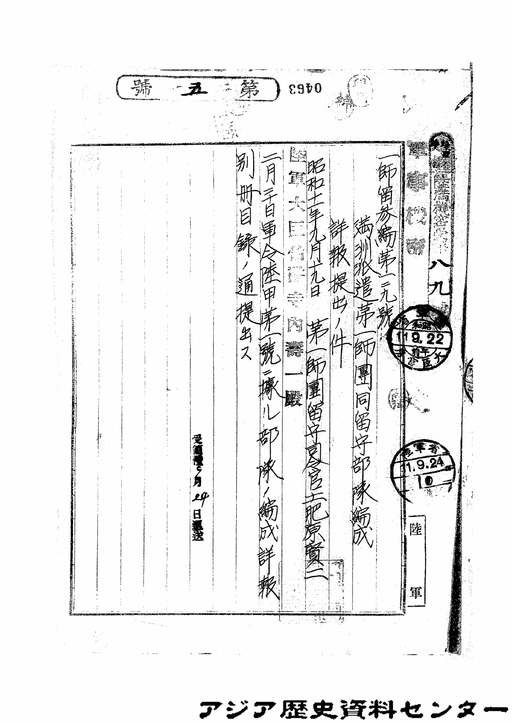 第五號
0463
軍事機密
八九
11.9.22
11.9.24
陸軍
一師留參編第一二九號
滿洲派遣第一師團同留守部隊編成
詳報提出ノ件
昭和十一年九月十九日 第一師團留守司令官土肥原賢二
陸軍大臣伯爵寺内壽一殿
二月二十日軍令陸甲第一號ニ據ル部隊ノ編成詳報
別冊目錄ノ通提出ス
24日
アジア歴史資料センター